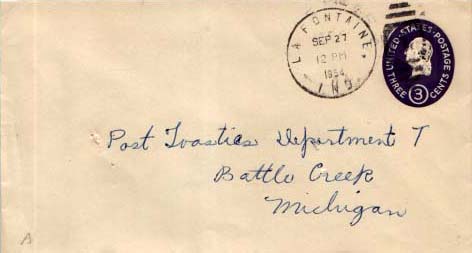 LA FONTAINE,
SEP 27
12 PM
1954
IND.
UNITED·STATES·POSTAGE
THREE 3 CENTS
Post Toasties Department T
Battle Creek
Michigan
A